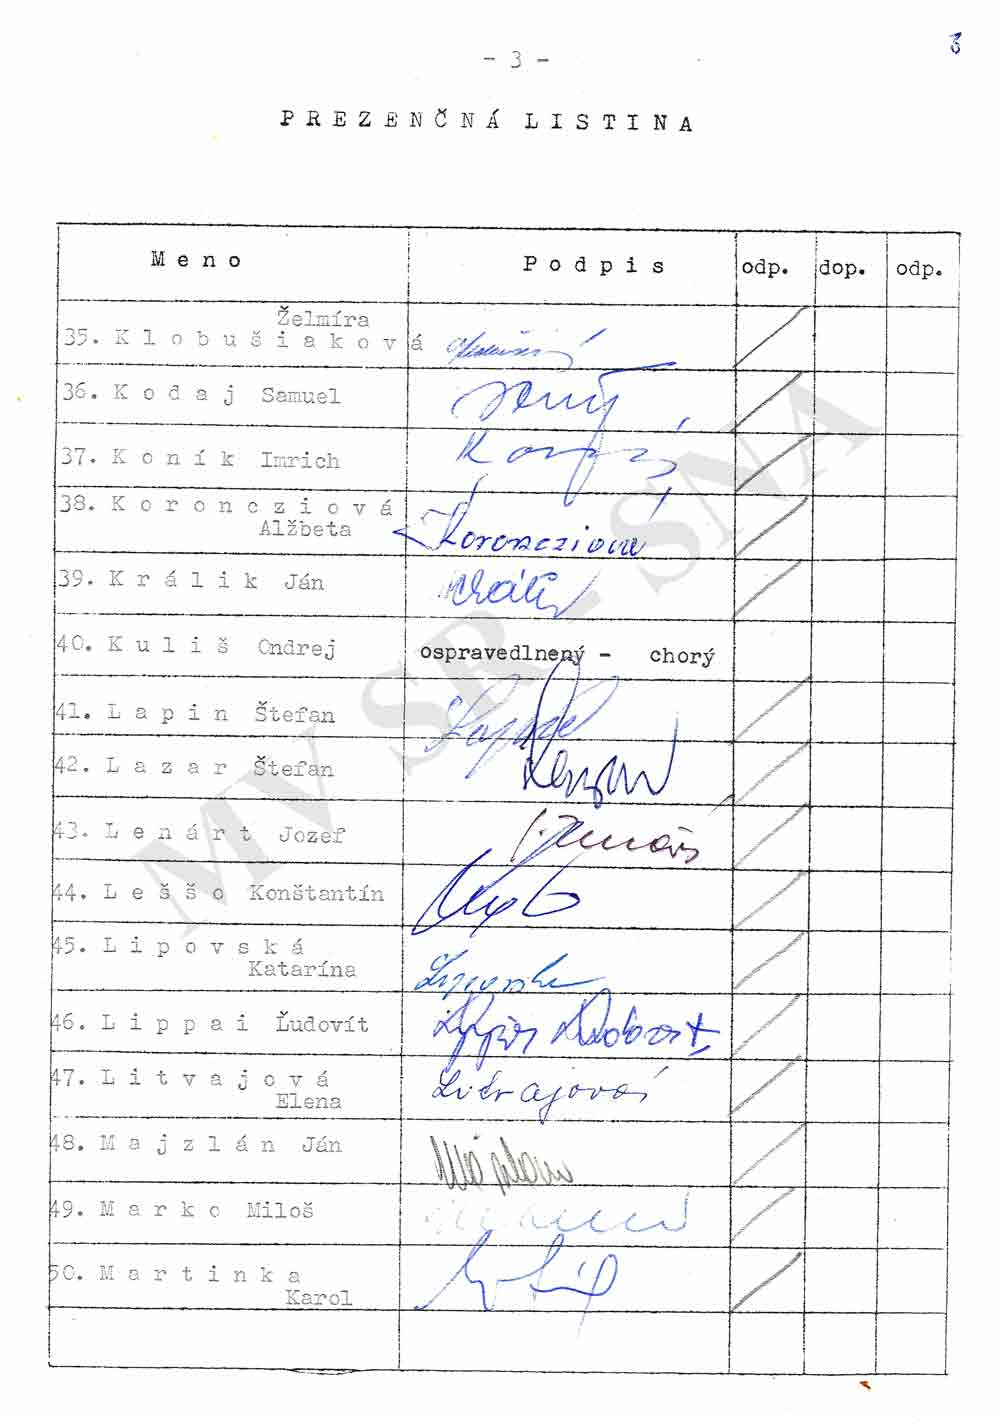 - 3 -
3
PREZENČNÁ LISTINA
Meno Podpis odp. dop. odp.
Želmíra
35. Klobušiaková
36. Kodaj Samuel
37. Koník Imrich
38. Koroncziová
Alžbeta
Koroncziová
39. Králik Ján
Králik
40. Kuliš Ondrej ospravedlnený - chorý
41. Lapin Štefan
42. Lazar Štefan
43. Lenárt Jozef
J. Lenárt
44. Leššo Konštantín
45. Lipovská
Katarína
Lipovská
46. Lippai Ľudovít
47. Litvajová
Elena
Litvajová
48. Majzlán Ján
49. Marko Miloš
50. Martinka
Karol
MV SR - SNA